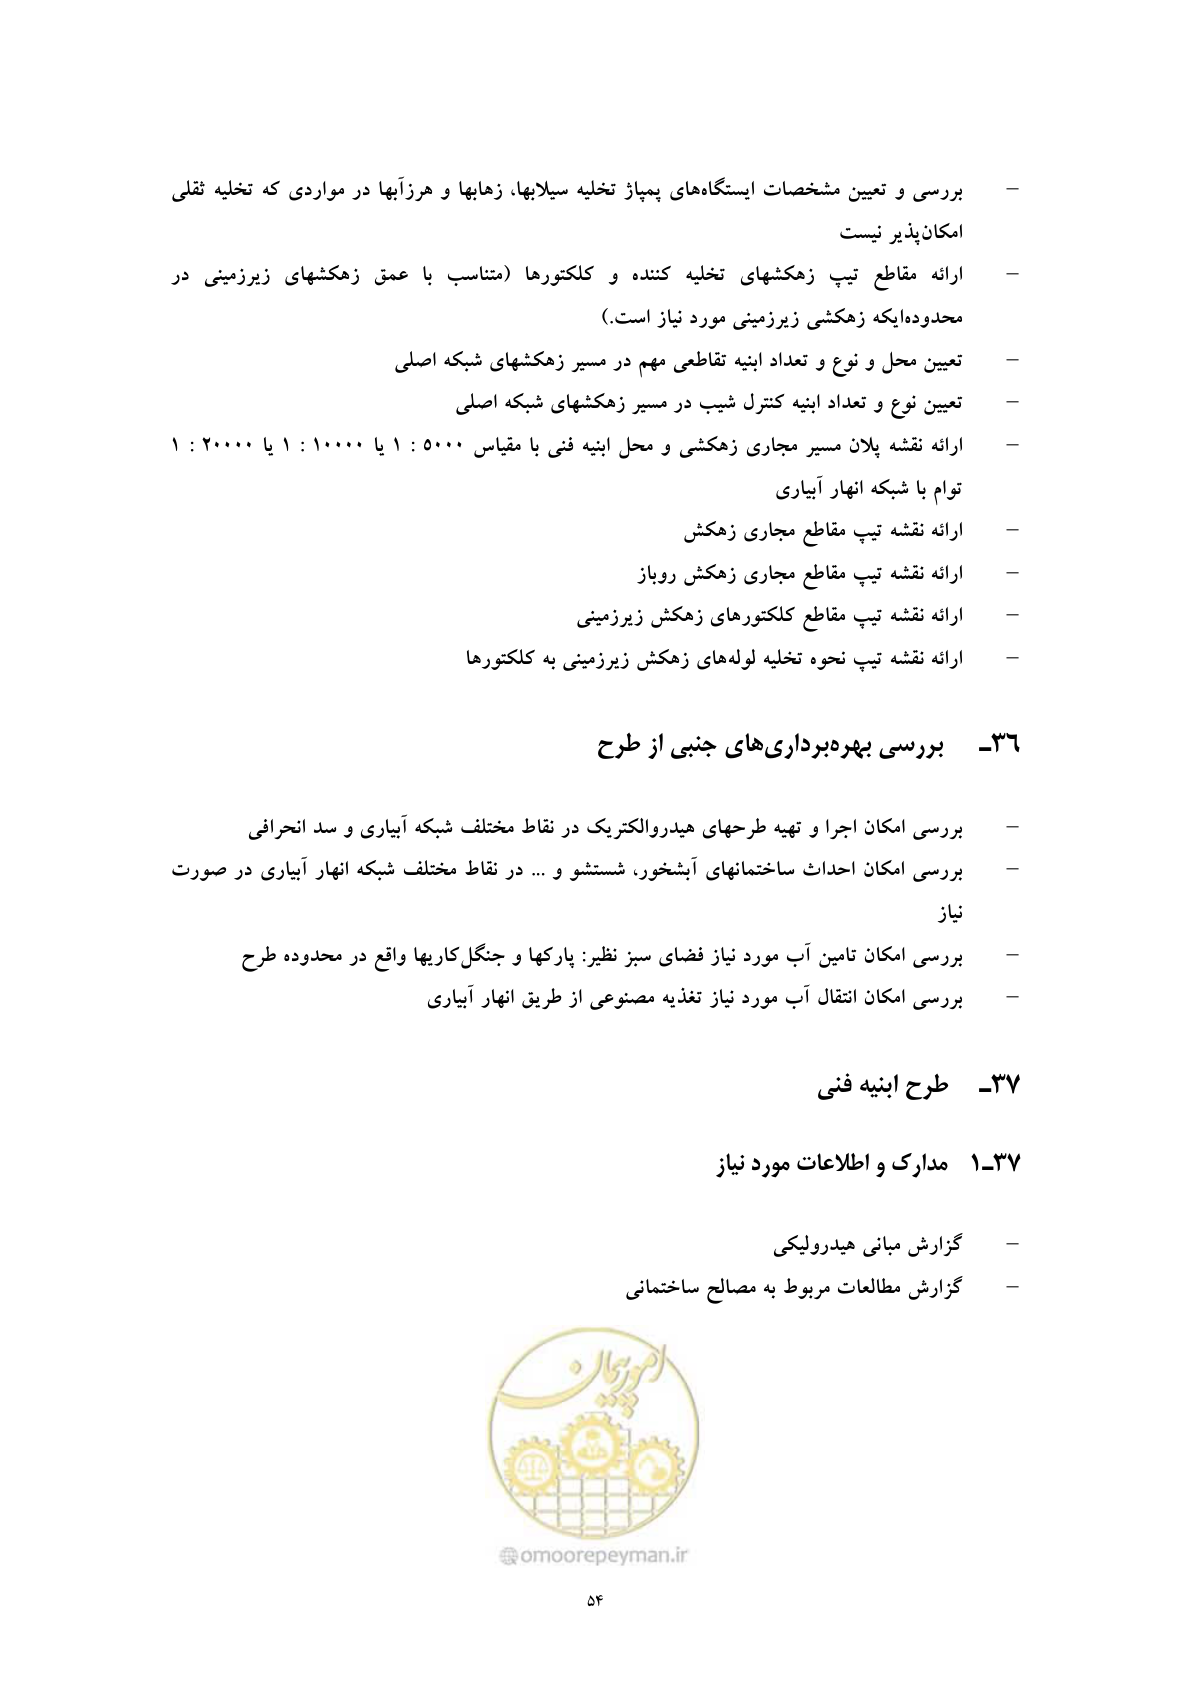 – بررسی و تعیین مشخصات ایستگاه‌های پمپاژ تخلیه سیلابها، زهابها و هرزآبها در مواردی که تخلیه ثقلی
امکان‌پذیر نیست
– ارائه مقاطع تیپ زهکشهای تخلیه کننده و کلکتورها (متناسب با عمق زهکشهای زیرزمینی در
محدوده‌ایکه زهکشی زیرزمینی مورد نیاز است.)
– تعیین محل و نوع و تعداد ابنیه تقاطعی مهم در مسیر زهکشهای شبکه اصلی
– تعیین نوع و تعداد ابنیه کنترل شیب در مسیر زهکشهای شبکه اصلی
– ارائه نقشه پلان مسیر مجاری زهکشی و محل ابنیه فنی با مقیاس ۵۰۰۰ : ۱ یا ۱۰۰۰۰ : ۱ یا ۲۰۰۰۰ : ۱
توام با شبکه انهار آبیاری
– ارائه نقشه تیپ مقاطع مجاری زهکش
– ارائه نقشه تیپ مقاطع مجاری زهکش روباز
– ارائه نقشه تیپ مقاطع کلکتورهای زهکش زیرزمینی
– ارائه نقشه تیپ نحوه تخلیه لوله‌های زهکش زیرزمینی به کلکتورها
۳۶ـ بررسی بهره‌برداری‌های جنبی از طرح
– بررسی امکان اجرا و تهیه طرحهای هیدروالکتریک در نقاط مختلف شبکه آبیاری و سد انحرافی
– بررسی امکان احداث ساختمانهای آبشخور، شستشو و ... در نقاط مختلف شبکه انهار آبیاری در صورت
نیاز
– بررسی امکان تامین آب مورد نیاز فضای سبز نظیر: پارکها و جنگل‌کاریها واقع در محدوده طرح
– بررسی امکان انتقال آب مورد نیاز تغذیه مصنوعی از طریق انهار آبیاری
۳۷ـ طرح ابنیه فنی
۳۷ـ۱ مدارک و اطلاعات مورد نیاز
– گزارش مبانی هیدرولیکی
– گزارش مطالعات مربوط به مصالح ساختمانی
امور پیمان
@omoorepeyman.ir
۵۴